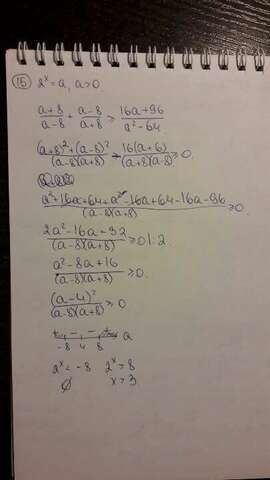 15) 2^x = a, a > 0.
(a+8)/(a-8) + (a-8)/(a+8) ≥ (16a+96)/(a²-64)
((a+8)²+(a-8)²)/((a-8)(a+8)) - 16(a+6)/((a+8)(a-8)) ≥ 0.
(a²+16a+64+a²-16a+64-16a-96)/((a-8)(a+8)) ≥ 0.
(2a²-16a+32)/((a-8)(a+8)) ≥ 0 | : 2
(a²-8a+16)/((a-8)(a+8)) ≥ 0.
(a-4)²/((a-8)(a+8)) ≥ 0
+ - - + a
-8 4 8
2^x = -8 2^x = 8
∅ x = 3